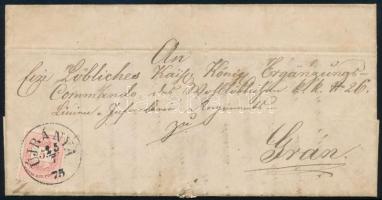 An
Ein Löbliches Kais. König. Ergänzungs-
Commando des Wohllöblichen k.k. # 26.
Linien Infanterie Regiments
zu
Grán.
ÚJBÁNYA
75